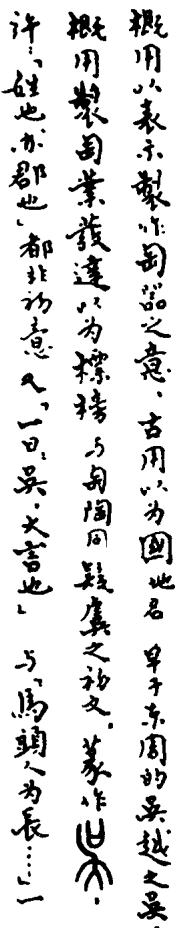 概用以表示製作匋器之意。古用以为國地名 早于东周的吴越之吴。
概用製匋業發達以为標榜 与匋陶同 疑虞之初文。篆作
许:「姓也,亦郡也」都非初意 又「一曰:吴,大言也」 与「馬頭人为長……」一